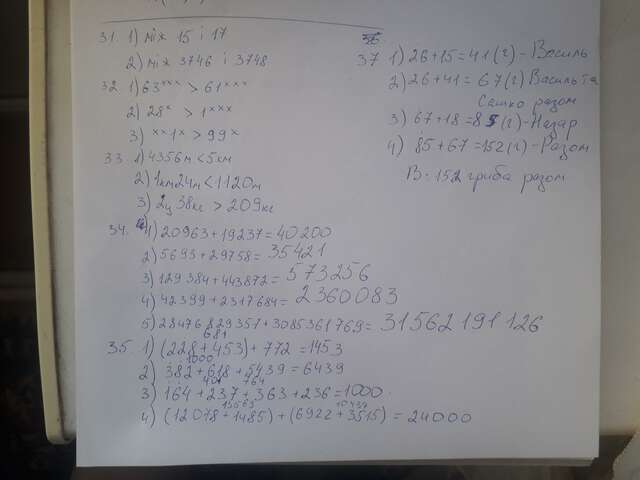 31. 1) між 15 і 17
2) між 3746 і 3748
32 1) 63*** > 61***
2) 28* > 1***
3) **1* > 99*
33. 1) 4356м < 5км
2) 1км24м < 1120м
3) 2ц 38кг > 209кг
34. 1) 20963 + 19237 = 40200
2) 5693 + 29758 = 35421
3) 129384 + 443872 = 573256
4) 42399 + 2317684 = 2360083
5) 28476829357 + 3085361769 = 31562191126
681
35 1) (228 + 453) + 772 = 1453
1000
2) 382 + 618 + 5439 = 6439
401 764
3) 164 + 237 + 363 + 236 = 1000
13563 10437
4) (12078 + 1485) + (6922 + 3515) = 24000
37 1) 26 + 15 = 41 (г) - Василь
2) 26 + 41 = 67 (г) Василь та
Сашко разом
3) 67 + 18 = 85 (г) - Назар
4) 85 + 67 = 152 (г) - Разом
В: 152 гриба разом